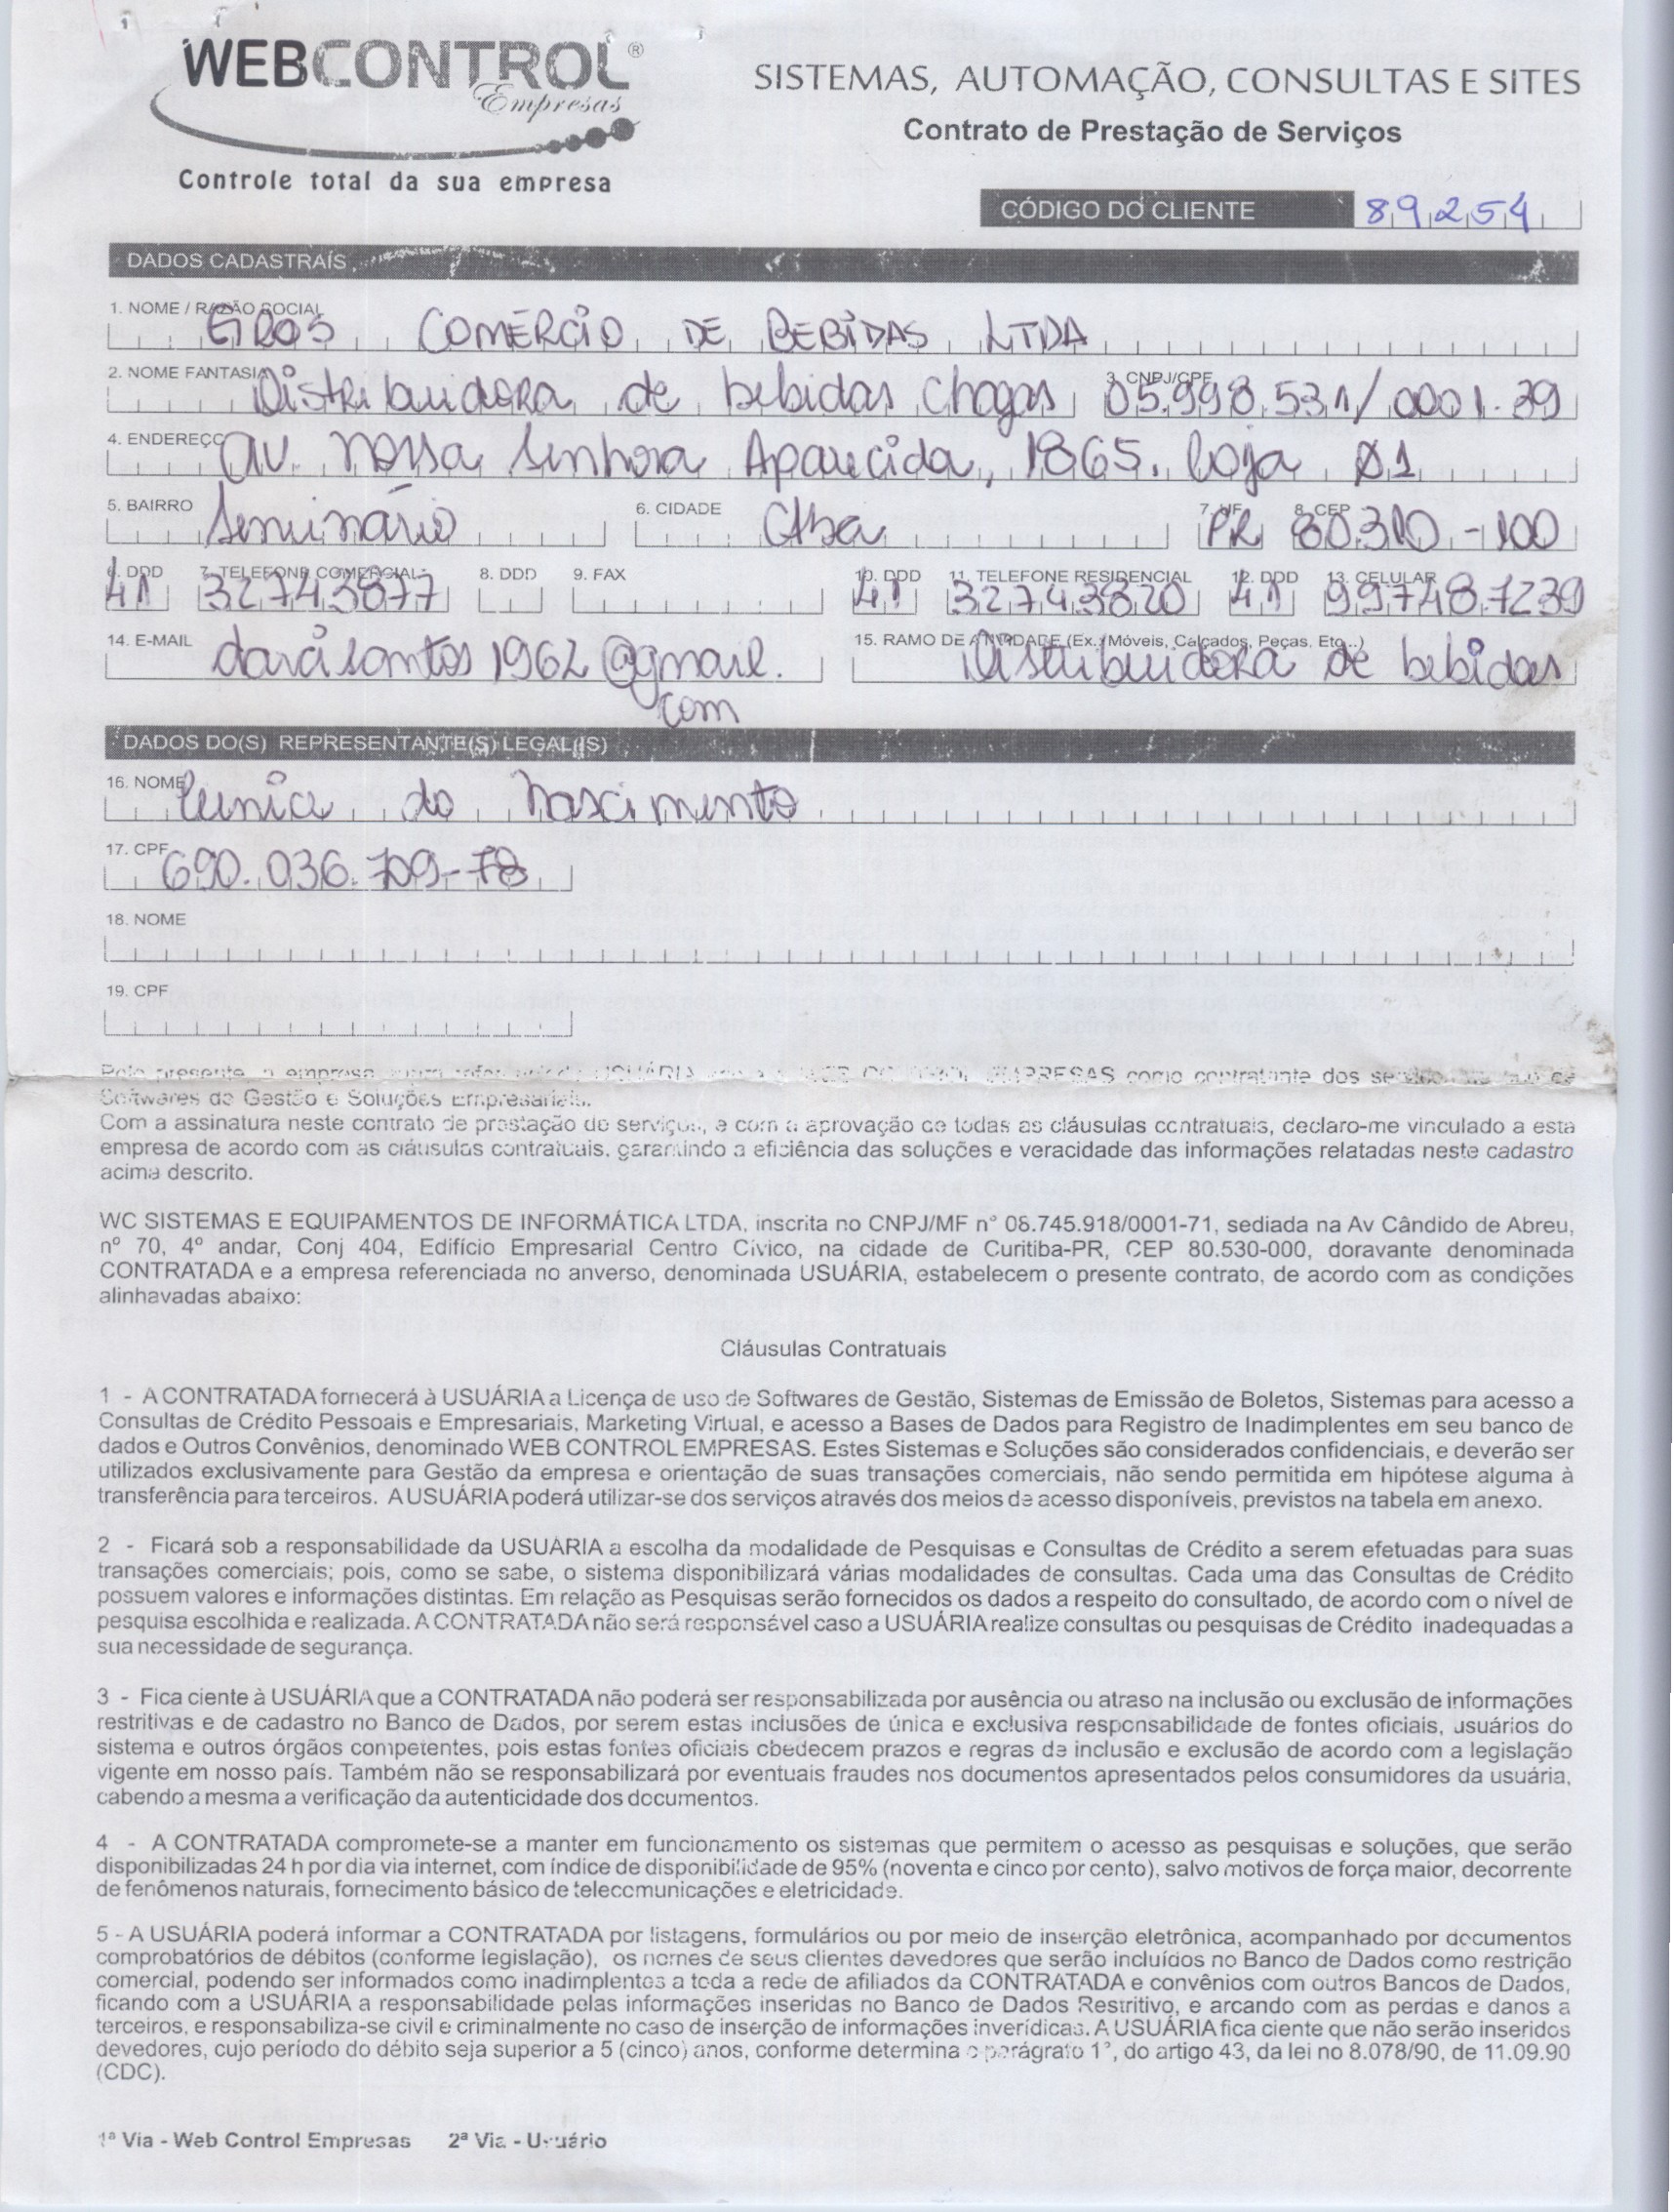 WEBCONTROL®
Empresas
Controle total da sua empresa
SISTEMAS, AUTOMAÇÃO, CONSULTAS E SITES
Contrato de Prestação de Serviços
CÓDIGO DO CLIENTE 89254
DADOS CADASTRAÍS
1. NOME / RAZÃO SOCIAL
COMÉRCIO DE BEBIDAS LTDA
2. NOME FANTASIA Distribuidora de bebidas Chagas 3. CNPJ/CPF 05.998.531/0001.39
4. ENDEREÇO Av. Nossa Senhora Aparecida, 1865. loja 01
5. BAIRRO Seminário 6. CIDADE Ctba 7. UF PR 8. CEP 80.310-100
6. DDD 41 7. TELEFONE COMERCIAL 32743877 8. DDD 9. FAX 10. DDD 41 11. TELEFONE RESIDENCIAL 32743820 12. DDD 41 13. CELULAR 99748.7239
14. E-MAIL darcisantos1962@gmail. 15. RAMO DE ATIVIDADE (Ex. Móveis, Calçados, Peças, Etc..) Distribuidora de bebidas
com
DADOS DO(S) REPRESENTANTE(S) LEGAL(IS)
16. NOME do Nascimento
17. CPF 690.036.709-78
18. NOME
19. CPF
Pelo presente, a empresa USUÁRIA EMPRESAS como contratante dos
Softwares de Gestão e Soluções Empresariais.
Com a assinatura neste contrato de prestação de serviços, e com a aprovação de todas as cláusulas contratuais, declaro-me vinculado a esta
empresa de acordo com as cláusulas contratuais, garantindo a eficiência das soluções e veracidade das informações relatadas neste cadastro
acima descrito.
WC SISTEMAS E EQUIPAMENTOS DE INFORMÁTICA LTDA, inscrita no CNPJ/MF n° 08.745.918/0001-71, sediada na Av Cândido de Abreu,
nº 70, 4º andar, Conj 404, Edifício Empresarial Centro Cívico, na cidade de Curitiba-PR, CEP 80.530-000, doravante denominada
CONTRATADA e a empresa referenciada no anverso, denominada USUÁRIA, estabelecem o presente contrato, de acordo com as condições
alinhavadas abaixo:
Cláusulas Contratuais
1 - A CONTRATADA fornecerá à USUÁRIA a Licença de uso de Softwares de Gestão, Sistemas de Emissão de Boletos, Sistemas para acesso a
Consultas de Crédito Pessoais e Empresariais, Marketing Virtual, e acesso a Bases de Dados para Registro de Inadimplentes em seu banco de
dados e Outros Convênios, denominado WEB CONTROL EMPRESAS. Estes Sistemas e Soluções são considerados confidenciais, e deverão ser
utilizados exclusivamente para Gestão da empresa e orientação de suas transações comerciais, não sendo permitida em hipótese alguma à
transferência para terceiros. A USUÁRIA poderá utilizar-se dos serviços através dos meios de acesso disponíveis, previstos na tabela em anexo.
2 - Ficará sob a responsabilidade da USUÁRIA a escolha da modalidade de Pesquisas e Consultas de Crédito a serem efetuadas para suas
transações comerciais; pois, como se sabe, o sistema disponibilizará várias modalidades de consultas. Cada uma das Consultas de Crédito
possuem valores e informações distintas. Em relação as Pesquisas serão fornecidos os dados a respeito do consultado, de acordo com o nível de
pesquisa escolhida e realizada. A CONTRATADA não será responsável caso a USUÁRIA realize consultas ou pesquisas de Crédito inadequadas a
sua necessidade de segurança.
3 - Fica ciente à USUÁRIA que a CONTRATADA não poderá ser responsabilizada por ausência ou atraso na inclusão ou exclusão de informações
restritivas e de cadastro no Banco de Dados, por serem estas inclusões de única e exclusiva responsabilidade de fontes oficiais, usuários do
sistema e outros órgãos competentes, pois estas fontes oficiais obedecem prazos e regras de inclusão e exclusão de acordo com a legislação
vigente em nosso país. Também não se responsabilizará por eventuais fraudes nos documentos apresentados pelos consumidores da usuária,
cabendo a mesma a verificação da autenticidade dos documentos.
4 - A CONTRATADA compromete-se a manter em funcionamento os sistemas que permitem o acesso as pesquisas e soluções, que serão
disponibilizadas 24 h por dia via internet, com índice de disponibilidade de 95% (noventa e cinco por cento), salvo motivos de força maior, decorrente
de fenômenos naturais, fornecimento básico de telecomunicações e eletricidade.
5 - A USUÁRIA poderá informar a CONTRATADA por listagens, formulários ou por meio de inserção eletrônica, acompanhado por documentos
comprobatórios de débitos (conforme legislação), os nomes de seus clientes devedores que serão incluídos no Banco de Dados como restrição
comercial, podendo ser informados como inadimplentes a toda a rede de afiliados da CONTRATADA e convênios com outros Bancos de Dados,
ficando com a USUÁRIA a responsabilidade pelas informações inseridas no Banco de Dados Restritivo, e arcando com as perdas e danos a
terceiros, e responsabiliza-se civil e criminalmente no caso de inserção de informações inverídicas. A USUÁRIA fica ciente que não serão inseridos
devedores, cujo período do débito seja superior a 5 (cinco) anos, conforme determina o parágrafo 1°, do artigo 43, da lei no 8.078/90, de 11.09.90
(CDC).
1ª Via - Web Control Empresas 2ª Via - Usuário